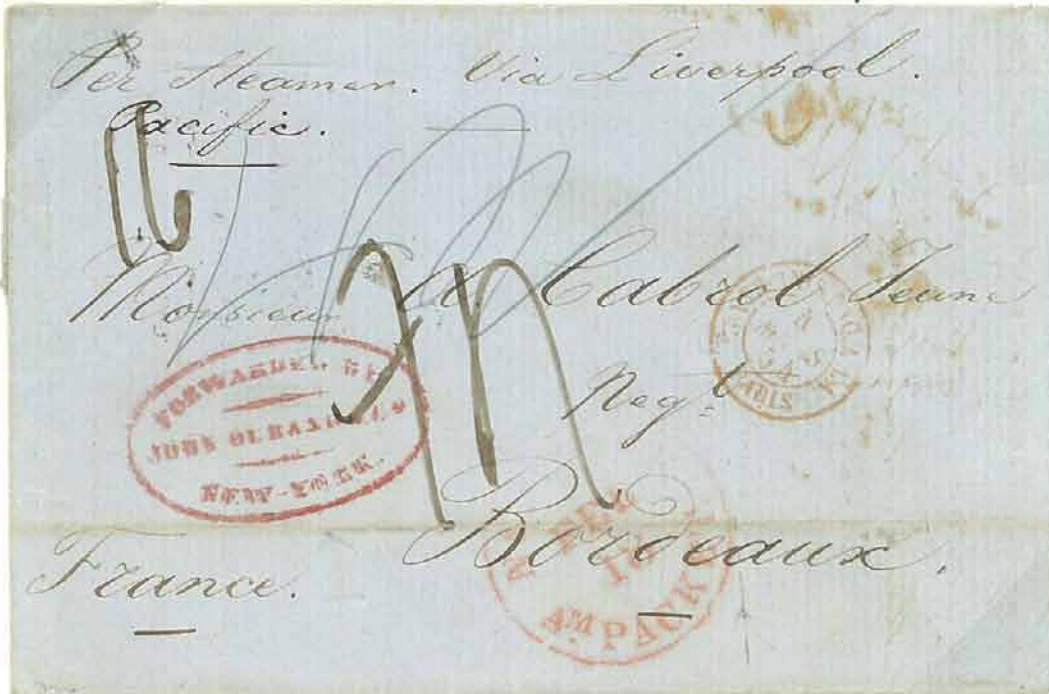 Per Steamer. Via Liverpool.
Pacific.
Monsieur Cabrol Jeune
Neg.t
Bordeaux.
France.
FORWARDED BY
JOHN
NEW-YORK.
PARIS
AM. PACK